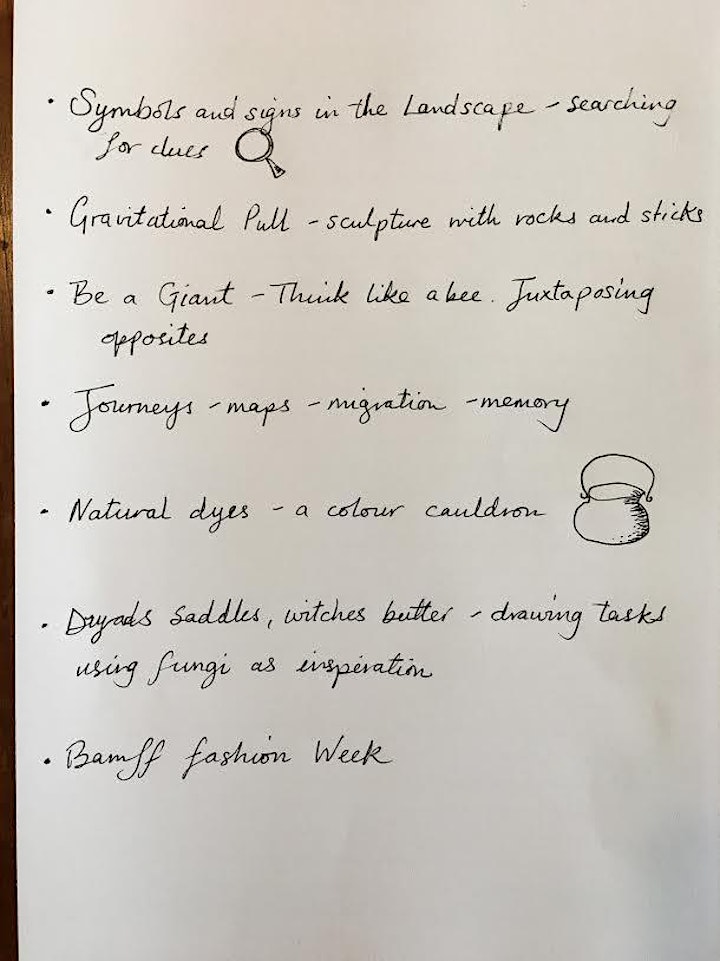 • Symbols and signs in the Landscape - searching
for clues
• Gravitational Pull - sculpture with rocks and sticks
• Be a Giant - Think like a bee. Juxtaposing
opposites
• Journeys - maps - migration - memory
• Natural dyes - a colour cauldron
• Dryads Saddles, witches butter - drawing tasks
using fungi as inspiration
• Bamff fashion Week